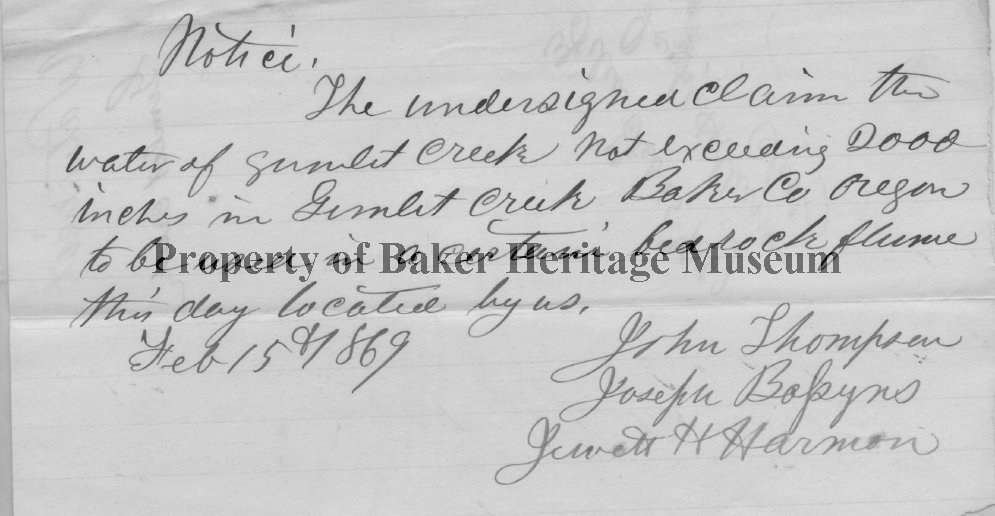 Notice.
The undersigned claim the
water of gumlet creek not exceeding 2000
inches in Gimlet creek Baker Co Oregon
to be used in a certain bedrock flume
Property of Baker Heritage Museum
this day located by us.
Feb 15th 1869
John Thompson
Joseph
Jewett H Harmon